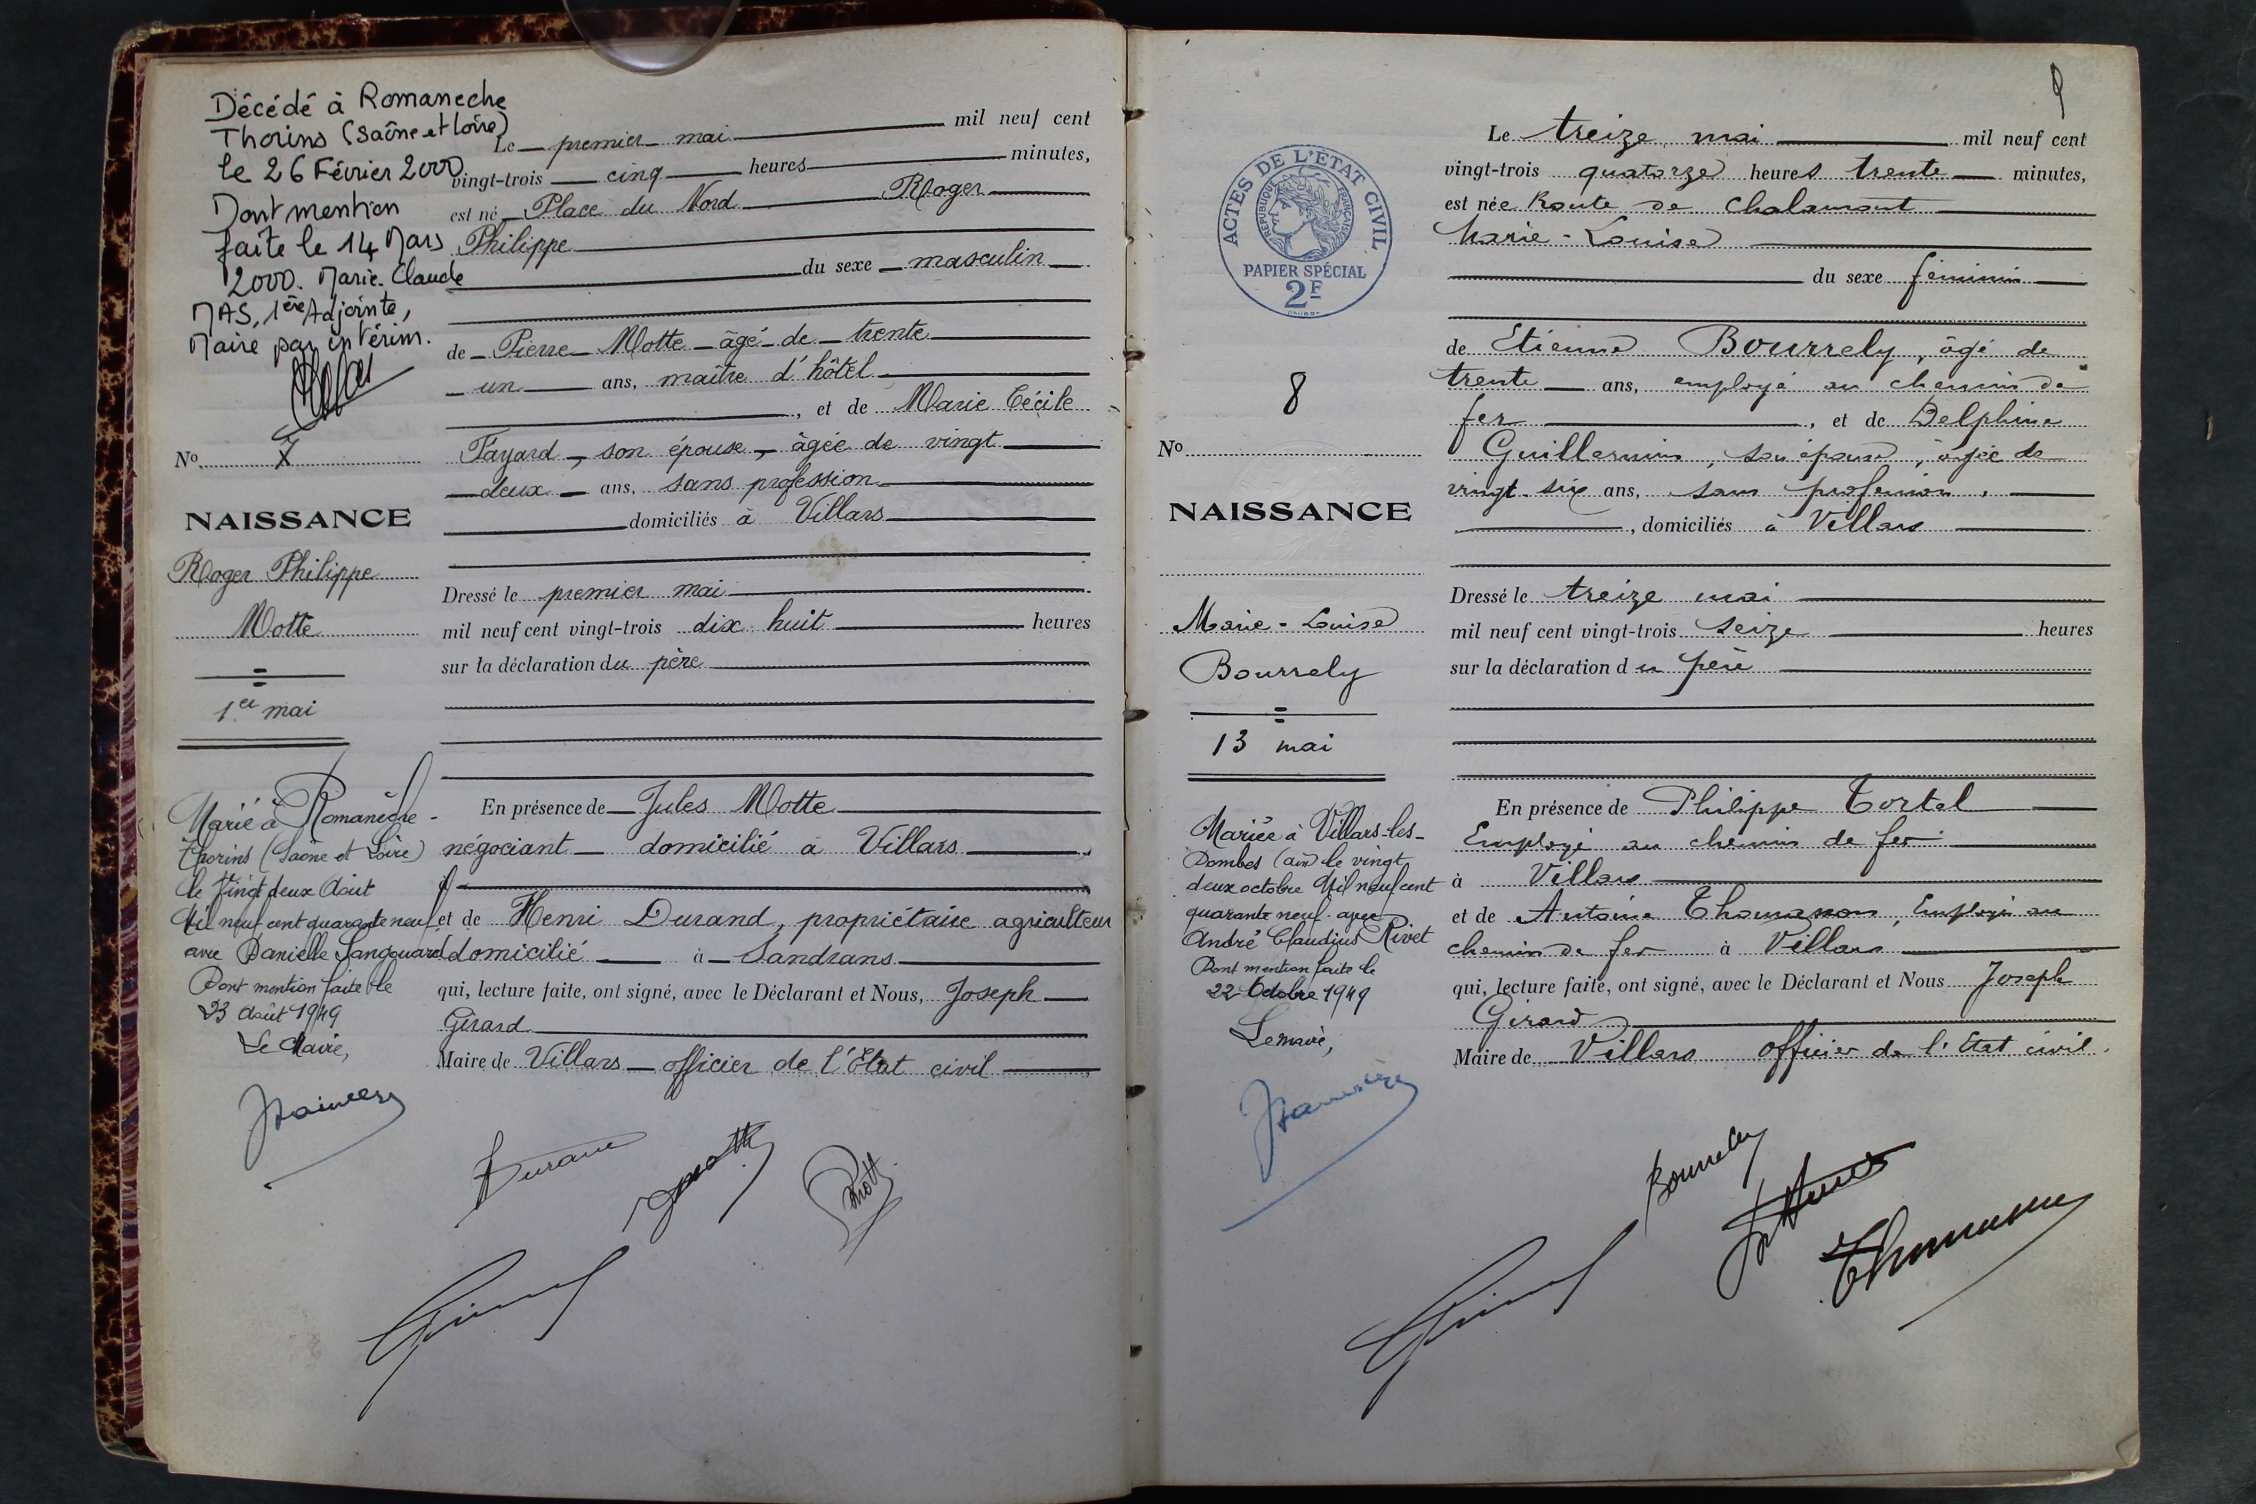 Décédé à Romaneche
Thorins (Saône et Loire)
le 26 Février 2000
Dont mention
faite le 14 Mars
2000. Marie-Claude
MAS, 1ère Adjointe,
Maire par intérim.
No 7
NAISSANCE
Roger Philippe
Motte
1er mai
Marié à Romanèche-
Thorins (Saône et Loire)
le vingt deux Août
Mil neuf cent quarante neuf
avec Danielle Sangouard
Dont mention faite le
23 août 1949
Le Maire,
Le premier mai mil neuf cent
vingt-trois cinq heures minutes,
est né Place du Nord Roger
Philippe
du sexe masculin
de Pierre Motte âgé de trente
un ans, maître d'hôtel
, et de Marie Cécile
Fayard, son épouse, âgée de vingt
deux ans, sans profession
domiciliés à Villars
Dressé le premier mai
mil neuf cent vingt-trois dix huit heures
sur la déclaration du père
En présence de Jules Motte
négociant domicilié à Villars
et de Henri Durand, propriétaire agriculteur
domicilié à Sandrans
qui, lecture faite, ont signé, avec le Déclarant et Nous, Joseph
Girard
Maire de Villars officier de l'Etat civil
Durand
9
ACTES DE L'ETAT CIVIL
REPUBLIQUE FRANÇAISE
PAPIER SPÉCIAL
2F
8
No
NAISSANCE
Marie-Louise
Bourrely
13 mai
Mariée à Villars-les-
Dombes (Ain) le vingt
deux octobre Mil neuf cent
quarante neuf avec
André Claudius Rivet
Dont mention faite le
22 Octobre 1949
Le maire,
Le treize mai mil neuf cent
vingt-trois quatorze heures trente minutes,
est née Route de Chalamont
Marie-Louise
du sexe féminin
de Etienne Bourrely, âgé de
trente ans, employé au chemin de
fer , et de Delphine
Guillermin, son épouse, âgée de
vingt-six ans, sans profession,
, domiciliés à Villars
Dressé le treize mai
mil neuf cent vingt-trois seize heures
sur la déclaration du père
En présence de Philippe Tortel
Employé au chemin de fer
à Villars
et de Antoine Thomasson, Employé au
chemin de fer à Villars
qui, lecture faite, ont signé, avec le Déclarant et Nous Joseph
Girard
Maire de Villars officier de l'Etat civil.
Bourrely